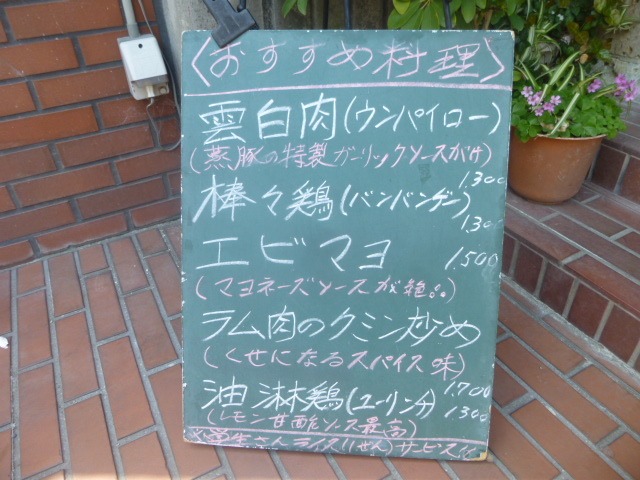 〈おすすめ料理〉
雲白肉(ウンパイロー)
(蒸豚の特製ガーリックソースがけ)
1.300
棒々鶏(バンバンヂー)
1.300
エビマヨ 1.500
(マヨネーズソースが絶品)
ラム肉のクミン炒め
(くせになるスパイス味)
1.700
油淋鶏(ユーリンチ) 1300
(レモン甘酢ソース最高)
学生さんライス サービス